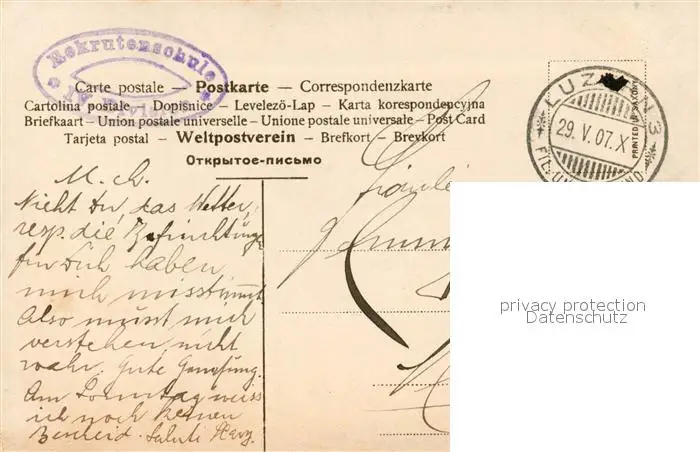 Rekrutenschule
Carte postale – Postkarte – Correspondenzkarte
Cartolina postale – Dopisnice – Levelező-Lap – Karta korespondencyjna
Briefkaart – Union postale universelle – Unione postale universale – Post Card
Tarjeta postal – Weltpostverein – Brefkort – Brevkort
Открытое-письмо
LUZERN 3
29. V. 07. X
PRINTED IN SAXONY
Fräulein
M. L.
Nicht Du, das Wetter,
resp. die Befürchtung
für Dich haben
mich misstimmt
Also musst mich
verstehen, nicht
wahr. Gute Genesung.
Am Sonntag weiss
ich noch keinen
Bescheid. Saluti
privacy protection
Datenschutz